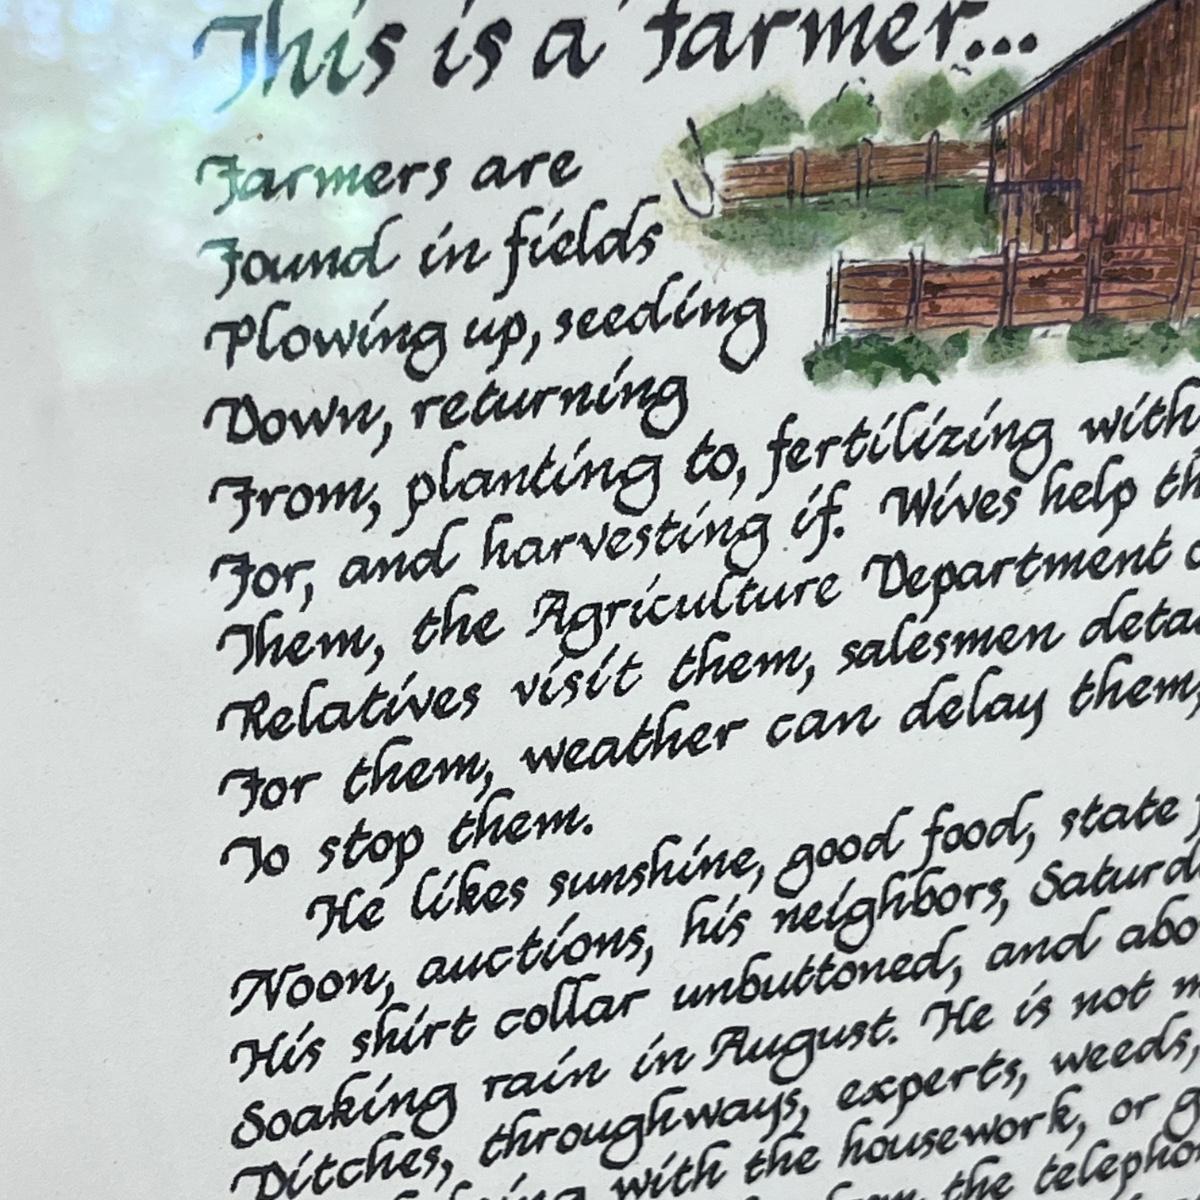 This is a farmer...
Farmers are
Found in fields
Plowing up, seeding
Down, returning
From, planting to, fertilizing with
For, and harvesting if. Wives help
Them, the Agriculture Department
Relatives visit them, salesmen
For them, weather can delay them,
To stop them.
He likes sunshine, good food, state
Noon, auctions, his neighbors,
His shirt collar unbuttoned, and
Soaking rain in August. He is not
Ditches, throughways, experts, weeds,
with the housework, or
the